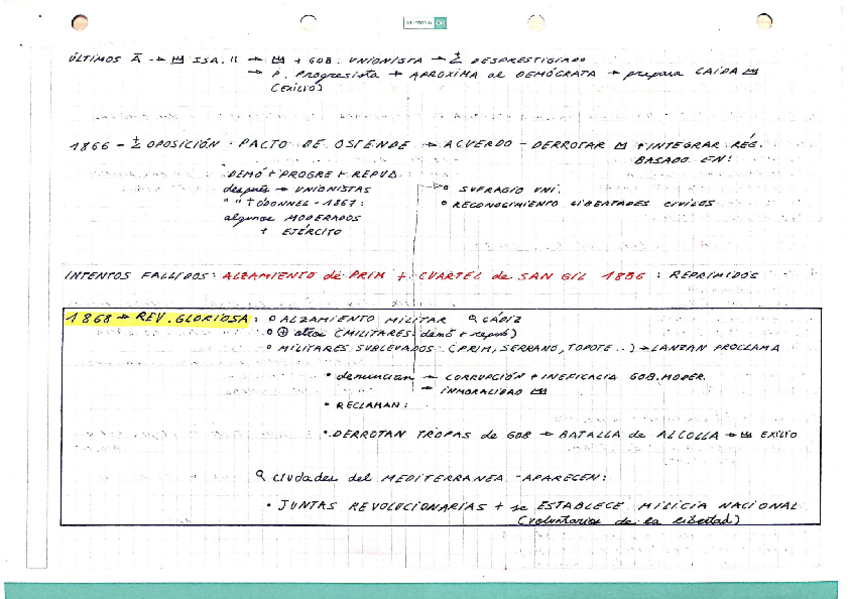 ÚLTIMOS Ā → ISA. II → + GOB. UNIONISTA → ± DESPRESTIGIADO
→ P. Progresista → APROXIMA al DEMÓCRATA → prepara CAÍDA
(EXILIO)
1866 - ± OPOSICIÓN · PACTO DE OSTENDE → ACUERDO - DERROTAR + INTEGRAR RÉG.
BASADO EN:
DEMÓ + PROGRE + REPUB
después → UNIONISTAS
" " + ODONNEL - 1867:
algunos MODERADOS
+ EJÉRCITO
→ o SUFRAGIO UNI.
o RECONOGIMIENTO LIBERTADES CIVILES
INTENTOS FALLIDOS: ALZAMIENTO de PRIM + CUARTEL de SAN GIL 1886 : REPRIMIDOS
1868 → REV. GLORIOSA : o ALZAMIENTO MILITAR CÁDIZ
o ⊕ otros (MILITARES demó + repub)
o MILITARES SUBLEVADOS (PRIM, SERRANO, TOPOTE..) → LANZAN PROCLAMA
• denuncian → CORRUPCIÓN + INEFICACIA GOB. MODER.
→ INMORALIDAD
• RECLAMAN:
• DERROTAN TROPAS de GOB → BATALLA de ALCOLLA → EXILIO
ciudades del MEDITERRANEA - APARECEN:
• JUNTAS REVOLUCIONARIAS + se ESTABLECE MILICIA NACIONAL
(voluntarios de la libertad)